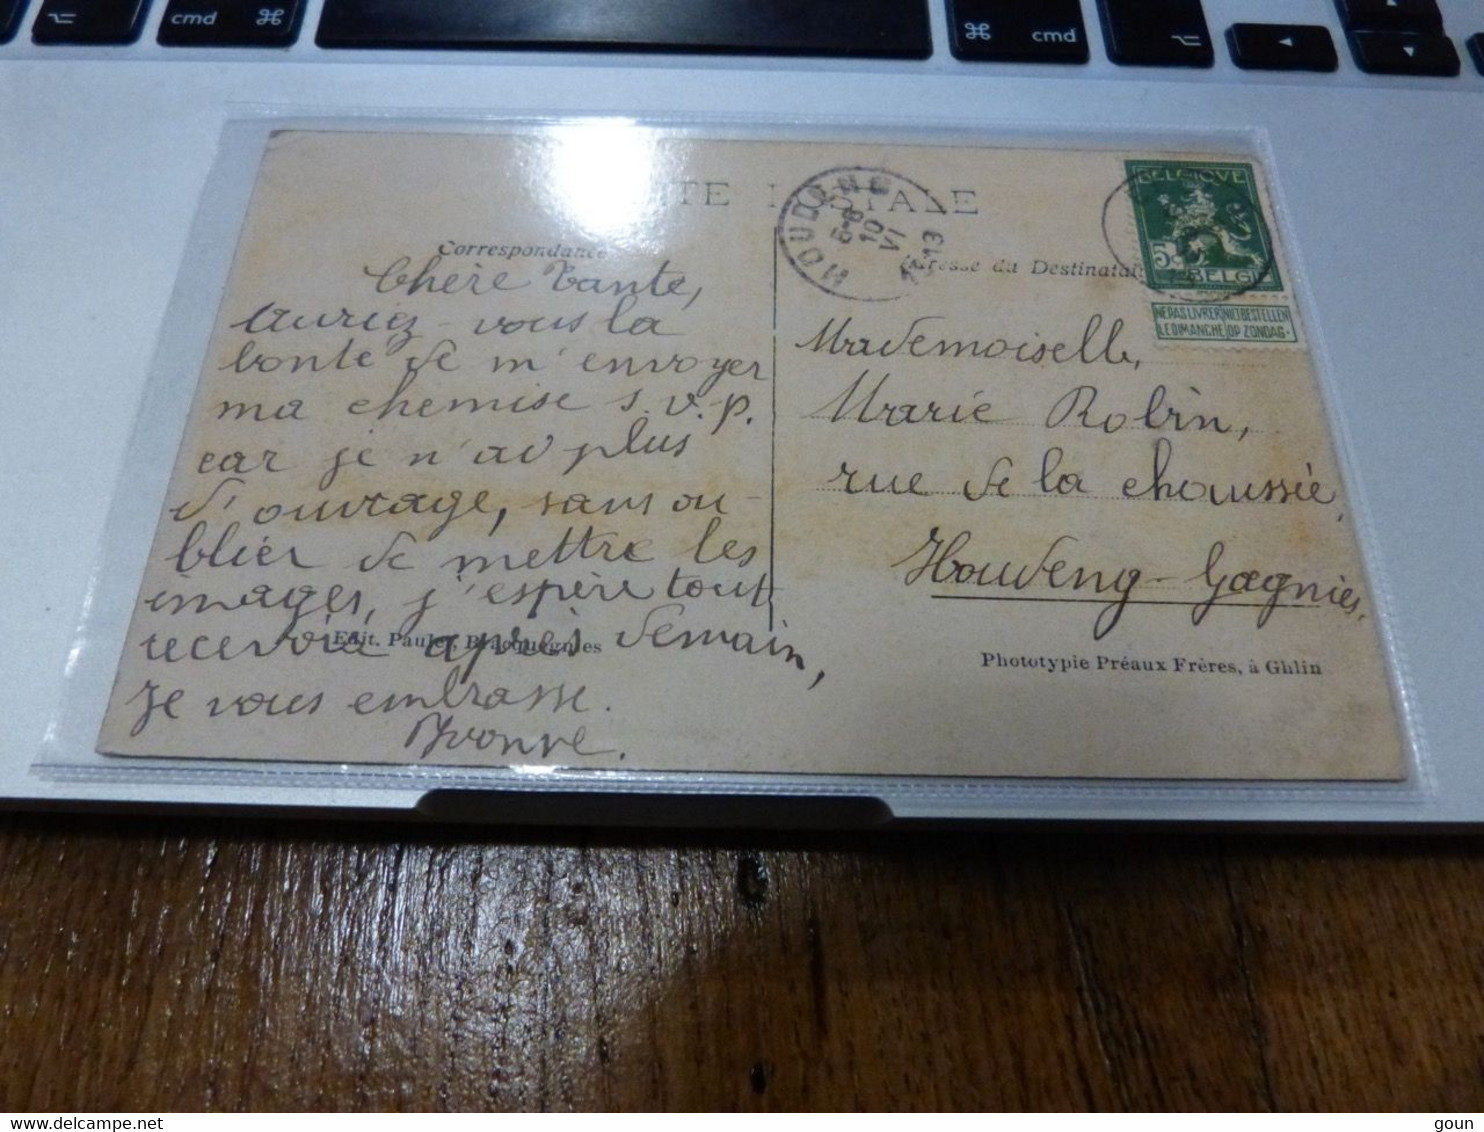 cmd ⌘
⌘ cmd
CARTE POSTALE
Correspondance
Chère Tante,
auriez-vous la
bonté de m'envoyer
ma chemise s.v.p.
car je n'ai plus
d'ouvrage, sans ou-
blier de mettre les
images, j'espère tout
recevoir après demain,
Je vous embrasse.
Yvonne.
Edit. Paulet, Bracquegnies
HOUDENG
5-6
10
VI
1913
Adresse du Destinataire
BELGIQUE
5c
BELGIË
NE PAS LIVRER NIET BESTELLEN
LE DIMANCHE OP ZONDAG.
Mademoiselle,
Marie Robin,
rue de la chaussée,
Houdeng-Gœgnies,
Phototypie Préaux Frères, à Ghlin
goun